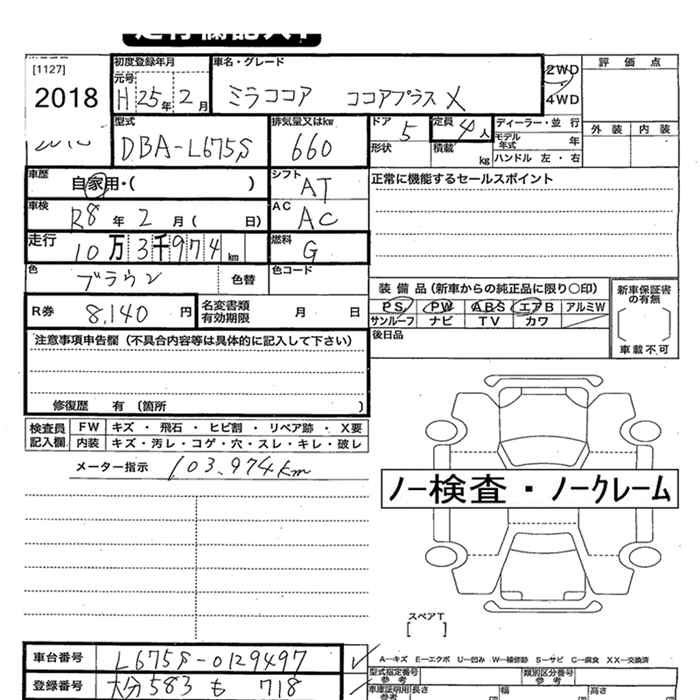 [1127]
2018
初度登録年月
元号
H 25年 2月
車名・グレード
ミラココア ココアプラス X
2WD
4WD
評価点
外装 内装
型式
DBA-L675S
排気量又はkw
660
ドア
5
形状
定員
4人
積載
kg
ディーラー・並行
モデル年式 年
ハンドル 左・右
車歴
自家用・( )
シフト
AT
正常に機能するセールスポイント
車検
R8 年 2 月 ( 日)
AC
AC
走行
10万3千974km
燃料
G
色
ブラウン
色替
色コード
装備品(新車からの純正品に限り○印)
PS PW ABS エアB アルミW
サンルーフ ナビ TV カワ
後日品
新車保証書の有無
車載不可
R券
8,140 円
名変書類有効期限 月 日
注意事項申告欄(不具合内容等は具体的に記入して下さい)
修復歴 有 〔箇所 〕
検査員記入欄
FW キズ・飛石・ヒビ割・リペア跡・X要
内装 キズ・汚レ・コゲ・穴・スレ・キレ・破レ
メーター指示 103,974km
ノー検査・ノークレーム
スペアT
[ ]
A…キズ E…エクボ U…凹み W…補修跡 S…サビ C…腐食 XX…交換済
車台番号
L675S-0129497
登録番号
大分 583 も 718
型式指定番号
参考
類別区分番号
参考
車庫証明用
参考
長さ
幅
高さ